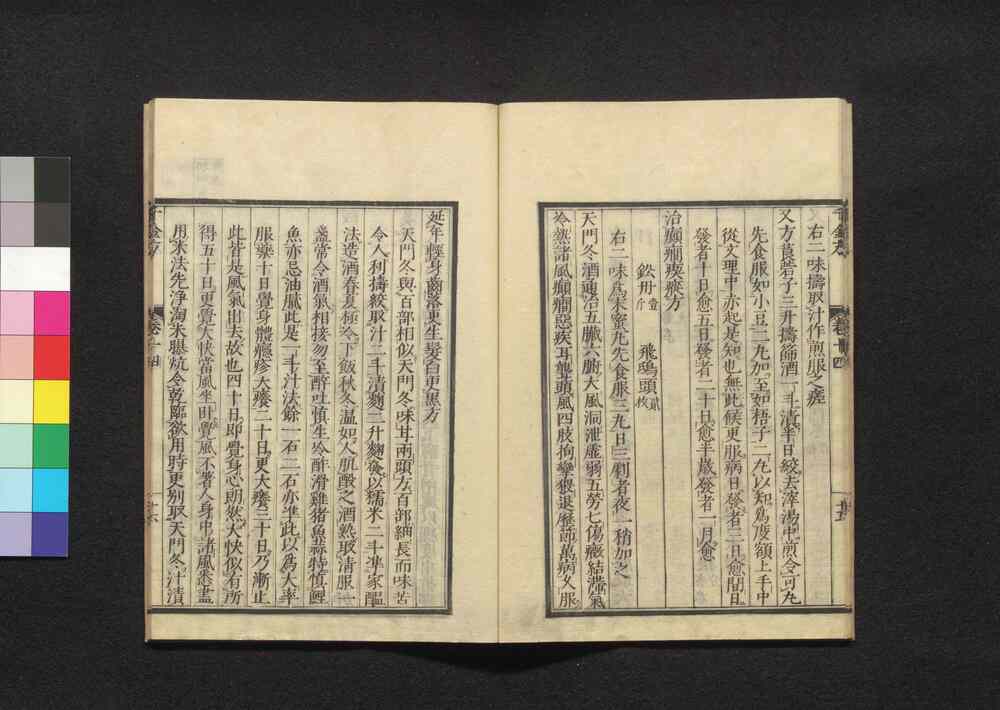 右二味擣取汁作煎服之瘥
又方莨菪子三升擣篩酒一斗漬半日絞去滓湯中煎令可丸
先食服如小豆二丸加至如梧子二丸以知爲度額上手中
從文理中亦起是知也無此候更服病日發者三日愈間日
發者十日愈五日發者二十日愈半歲發者一月愈
治癲癎瘈瘲方
鈆丹壹斤 飛鴟頭貳枚
右二味爲末蜜丸先食服三丸日三劇者夜一稍加之
天門冬酒通治五臟六腑大風洞泄虛弱五勞七傷癥結滯氣
冷熱諸風癲癎惡疾耳聾頭風四肢拘攣猥退歷節萬病久服
延年輕身齒落更生髮白更黑方
天門冬與百部相似天門冬味甘兩頭方百部細長而味苦
令人利擣絞取汁二斗漬麴二升麴發以糯米二斗準家醞
法造酒春夏極冷下飯秋冬溫如人肌酘之酒熟取清服一
盞常令酒氣相接勿至醉吐慎生冷酢滑雞猪魚蒜特慎鯉
魚亦忌油膩此是一斗汁法餘一石二石亦準此以爲大率
服藥十日覺身體癮疹大癢二十日更大癢三十日乃漸止
此皆是風氣出去故也四十日即覺身心朗然大快似有所
得五十日更覺大快當風坐卧覺風不著人身中諸風悉盡
用米法先淨淘米曝炕令乾臨欲用時更别取天門冬汁漬